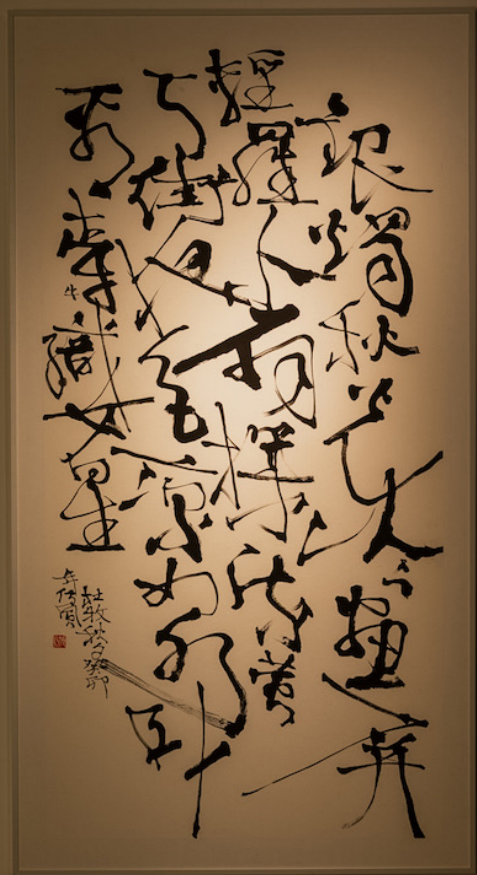 銀燭秋光冷畫屏
輕羅小扇撲流螢
天街夜色凉如水卧
看牽牛織女星
杜牧秋夕癸卯
年